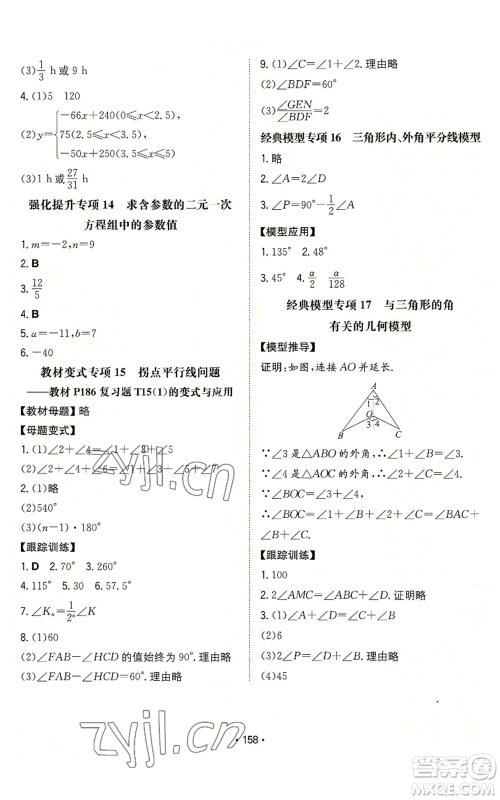 (3)1/3 h或9 h
4.(1)5 120
(2)y={−66x+240(0≤x<2.5),
75(2.5≤x<5.5),
60x(5.5≤x≤9).
(3)1 h或27/31 h
强化提升专项14 求含参数的二元一次
方程组中的参数值
1.m=−2,n=9
2.B
3.12/5
5.a=−11,b=7
6.−40
教材变式专项15 拐点平行线问题
——教材P186复习题T15(1)的变式与应用
【教材母题】略
【母题变式】
1.(1)∠2+∠4=∠1+∠3+∠5
(2)∠2+∠4+∠6=∠1+∠3+∠5+∠7
2.(1)略
(2)540°
(3)(n−1)·180°
【跟踪训练】
1.D 2.70° 3.260°
4.115° 5.30 6.57.5°
7.∠Kₙ=1/2ⁿ∠K
8.(1)60
(2)∠FAB−∠HCD的值始终为90°.理由略
(3)∠FAB−∠HCD=90°.理由略
9.(1)∠C=∠1+∠2.理由略
(2)∠BDF=60°
(3)∠GEN/∠BDF=2
经典模型专项16 三角形内、外角平分线模型
1.略
2.∠A=2∠D
3.∠P=90°−1/2∠A
【模型应用】
1.135° 2.48°
3.45° 4.α/2 α/2ⁿ
经典模型专项17 与三角形的角
有关的几何模型
【模型推导】
证明:如图,连接AO并延长.
A
1 2
O
3 4
B C
∵∠3是△ABO的外角,∴∠3=∠1+∠B
∵∠4是△AOC的外角,∴∠4=∠2+∠C
∵∠BOC=∠3+∠4,
∴∠BOC=∠1+∠B+∠2+∠C=∠BAC+
∠B+∠C
【跟踪训练】
1.100
2.∠AMC=∠B+∠D.证明略
3.(1)∠A+∠D=∠C+∠B
(2)6
(3)2∠P=∠B+∠D.理由略
(4)45
·158·
zyjl.cn
zyjl.cn
作业精灵
答案圈
MXQE.COM